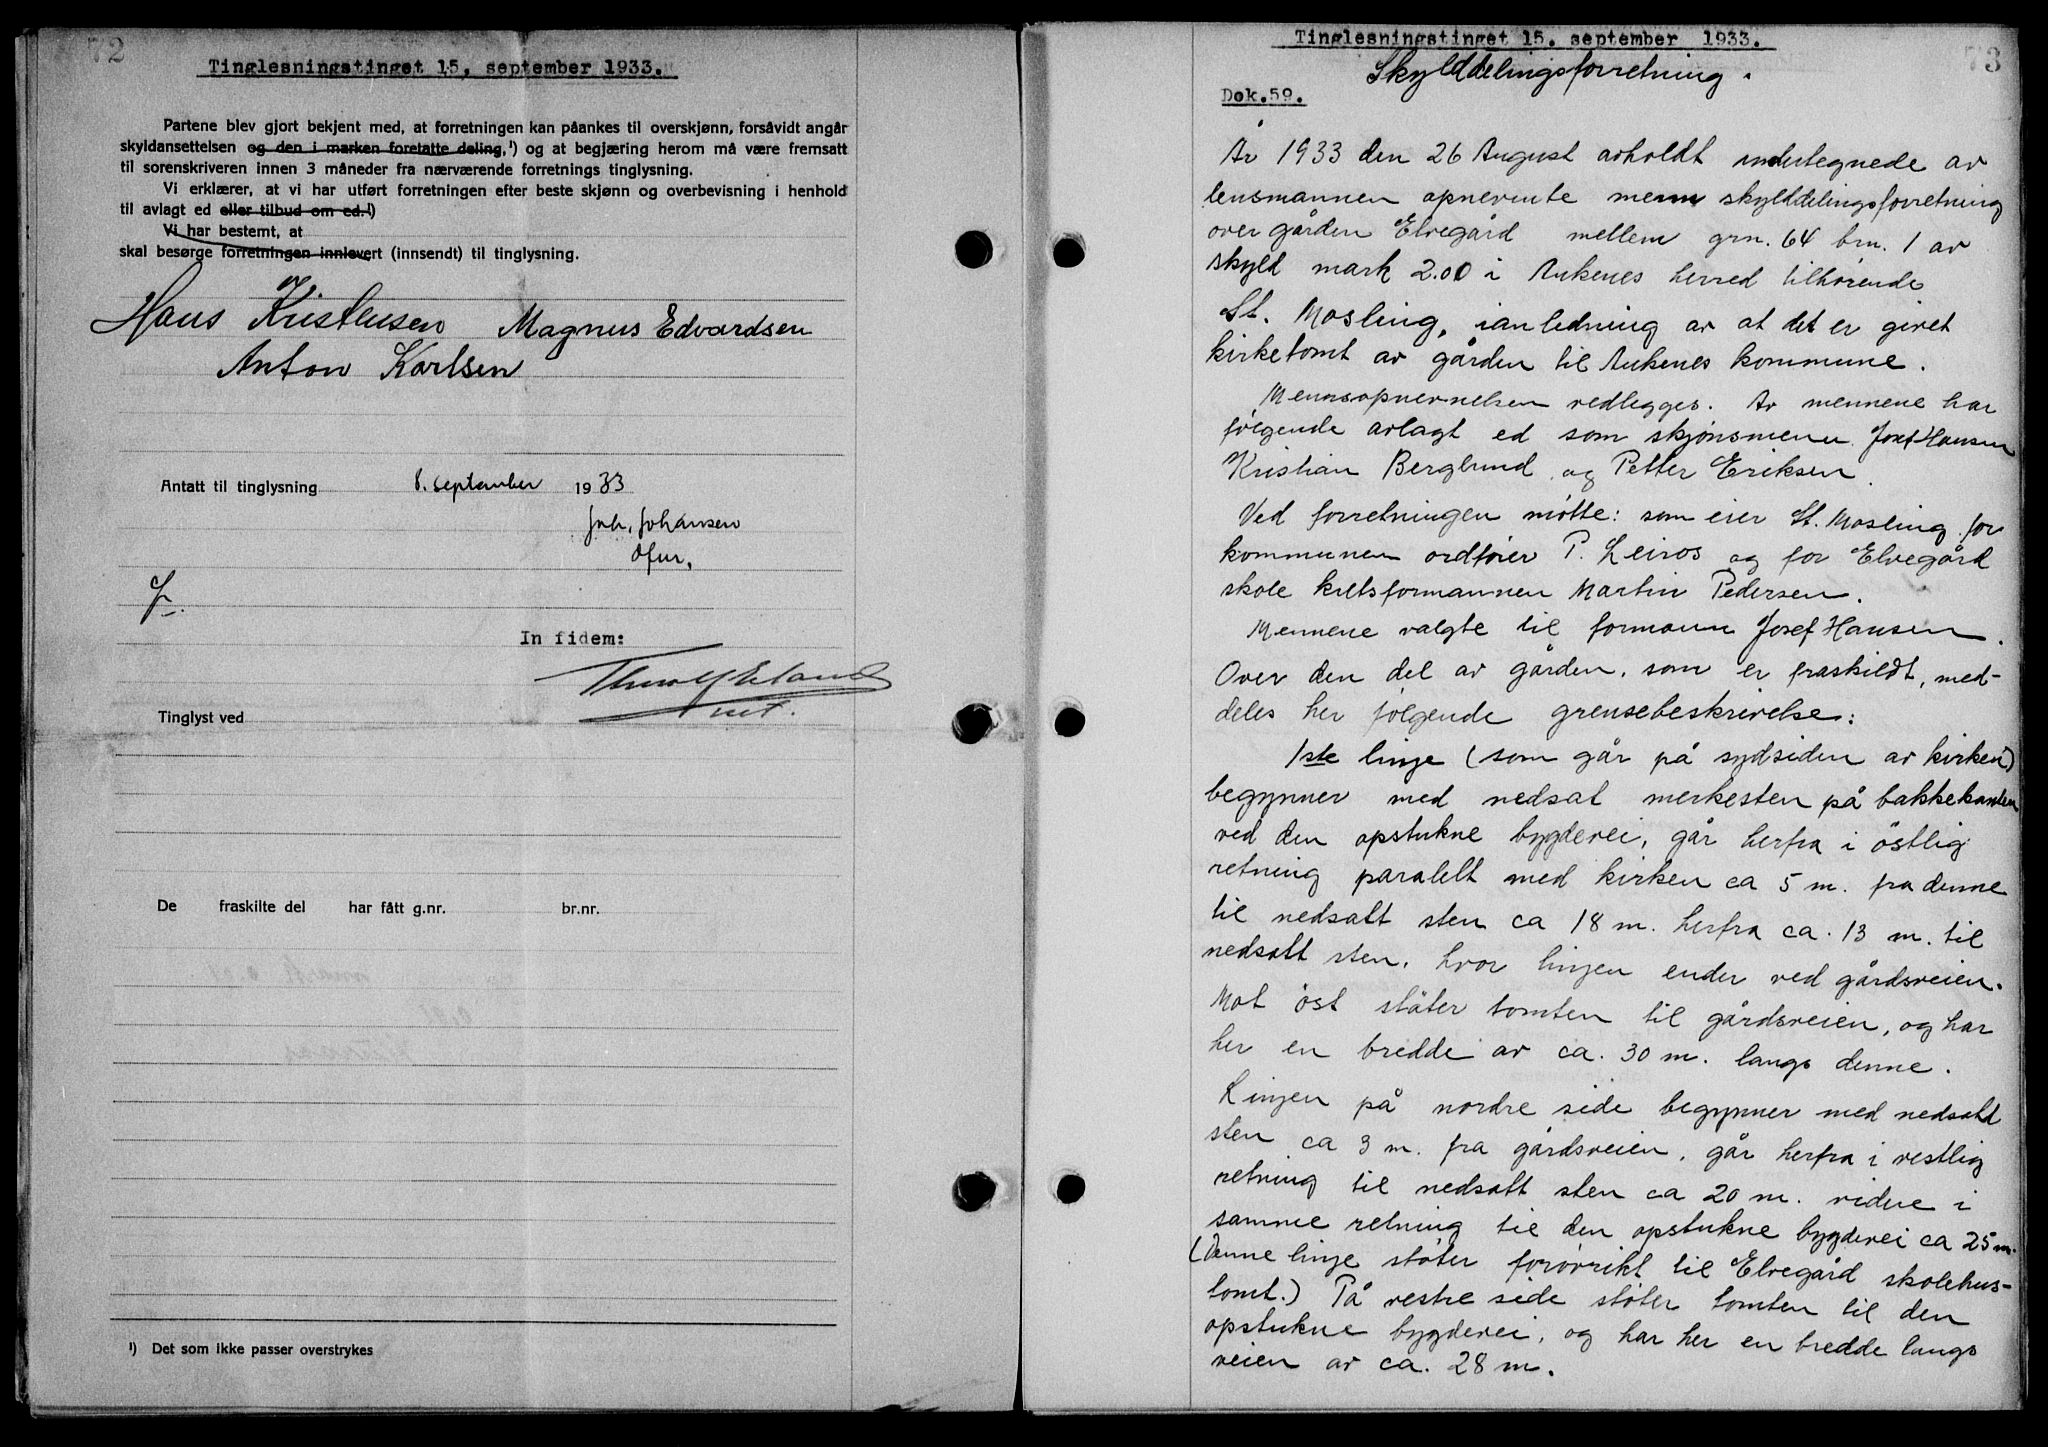 72
Tinglesningstinget 15, september 1933.
Partene blev gjort bekjent med, at forretningen kan påankes til overskjønn, forsåvidt angår
skyldansettelsen og den i marken foretatte deling,¹) og at begjæring herom må være fremsatt
til sorenskriveren innen 3 måneder fra nærværende forretnings tinglysning.
Vi erklærer, at vi har utført forretningen efter beste skjønn og overbevisning i henhold
til avlagt ed eller tilbud om ed.¹)
Vi har bestemt, at
skal besørge forretningen innlevert (innsendt) til tinglysning.
Hans Kristensen Magnus Edvardsen
Anton Karlsen
Antatt til tinglysning 8. september 1933
Joh. Johansen
Ofur.
In fidem:
Tinglyst ved
De fraskilte del har fått g.nr. br.nr.
¹) Det som ikke passer overstrykes
73
Tinglesningstinget 15. september 1933.
Skylddelingsforretning.
Dok.59.
År 1933 den 26 August avholdt undertegnede av
lensmannen opnevnte menn skylddelingsforretning
over gården Elvegård mellem grn. 64 brn. 1 av
skyld mark 2.00 i Ankenes herred tilhørende
St. Mosling, i anledning av at det er givet
kirketomt av gården til Ankenes kommune.
Mennsopnevnelsen vedlegges. Av mennene har
følgende avlagt ed som skjønsmenn Josef Hansen
Kristian Berglund og Petter Eriksen.
Ved forretningen møtte: som eier St. Mosling for
kommunen ordfører P. Leiros og for Elvegård
skole kretsformannen Martin Pedersen.
Mennene valgte til formann Josef Hansen.
Over den del av gården, som er fraskildt, med-
deles her følgende grensebeskrivelse:
1ste linje (som går på sydsiden av kirken)
begynner med nedsat merkesten på bakkekanten
ved den opstukne bygdevei, går herfra i östlig
retning paralelt med kirken ca 5 m. fra denne
til nedsatt sten ca 18 m. herfra ca. 13 m. til
nedsatt sten, hvor linjen ender ved gårdsveien.
Mot öst støter tomten til gårdsveien, og har
her en bredde av ca. 30 m. langs denne.
Linjen på nordre side begynner med nedsatt
sten ca 3 m. fra gårdsveien, går herfra i vestlig
retning til nedsatt sten ca 20 m. videre i
samme retning til den opstukne bygdevei ca 25 m.
(Denne linje støter forøvrikt til Elvegård skolehus-
tomt.) På vestre side støter tomten til den
opstukne bygdevei, og har her en bredde langs
veien av ca. 28 m.